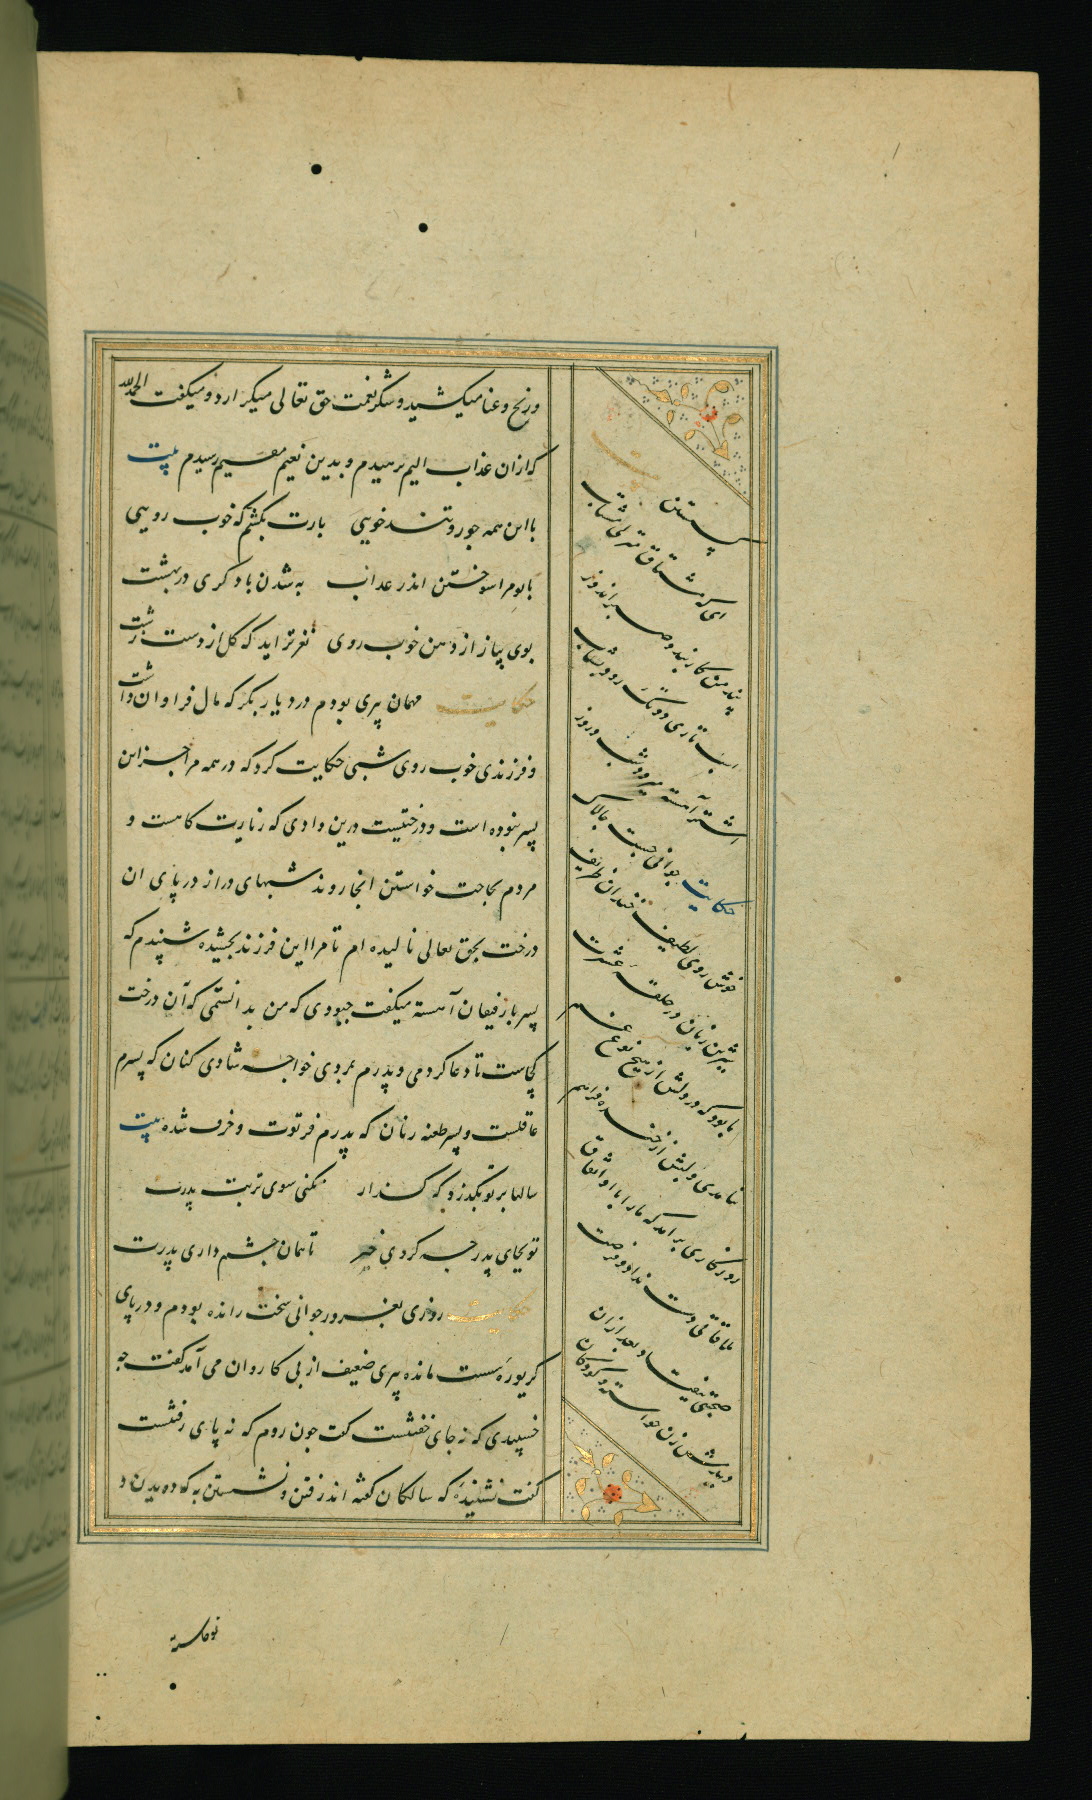 ورنج و عنا میکشید و شکر نعمت حق تعالی میکزارد و میکفت الحمدلله
که ازان عذاب الیم برهیدم و بدین نعیم مقیم رسیدم بیت
با این همه جور و تند خویی بارت بکشم که خوب رویی
با تو مرا سوختن اندر عذاب به شدن با دکری در بهشت
بوی پیاز از دهن خوب روی نغزتر اید که کل از دست زشت
حکایت مهمان پیری بودم در دیار بکر که مال فراوان داشت
و فرزندی خوب روی شبی حکایت کرد که در همه مرا جز این
پسر نبوده است و درختیست درین وادی که زیارت کاهست و
مردم بحاجت خواستن انجا روند شبهای دراز در پای ان
درخت بحق تعالی نالیده ام تا مرا این فرزند بخشیده شنیدم که
پسر با رفیقان آهسته میکفت چبودی که من بدانستمی که آن درخت
کجاست تا دعا کردمی و پدرم بمردی خواجه شادی کنان که پسرم
عاقلست و پسر طعنه زنان که پدرم فرتوت و خرف شده بیت
سالها بر تو بکذرد که کذار نکنی سوی تربت پدرت
تو بجای پدر چه کردی خیر تا همان چشم داری پدرت
حکایت روزی بغرور جوانی سخت رانده بودم و در پای
کریوه سست مانده پیری ضعیف از پی کاروان می آمد کفت چه
خسپیدی که نه جای خفتست کفت چون روم که نه پای رفتست
کفت نشنیده که سالکان کفته اند رفتن و نشستن به که دویدن و
بیت
کسستن
ای که مشتاق منزلی مشتاب
پند من کار بند و صبر اندوز
اسب تازی دو تک رود بشتاب
اشتر آهسته میرود شب و روز
حکایت جوانی چست چالاک
خوش روی لطیف خندان ظریف
شیرین زبان در حلقه عشرت
ما بود که در دلش از هیچ نوع غم
نیامدی و لبش از خنده فراهم
روزکاری برآمد که مارا با او اتفاق
ملاقاتی دست نداد و فرصت
صحبتی نیفتاد بعد ازان
دیدمش زن خواسته و کودکان
نوخاسته